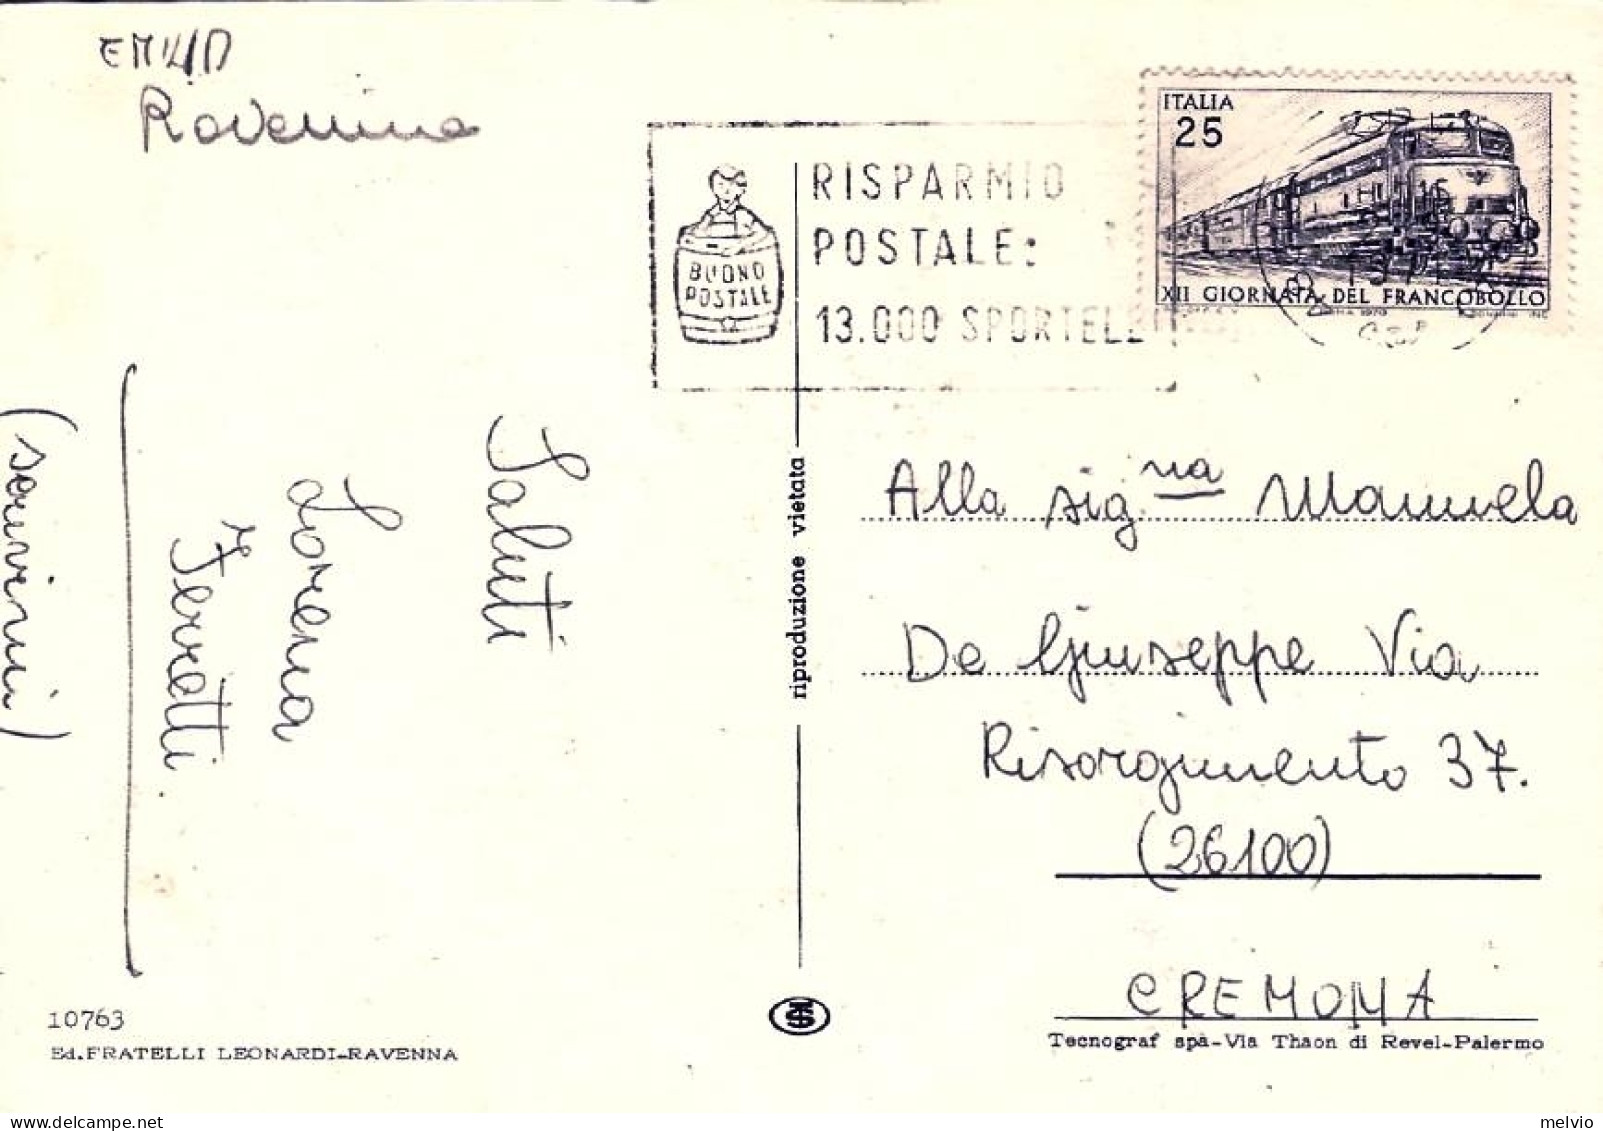 EMILIA
Ravenna
ITALIA
25
XII GIORNATA DEL FRANCOBOLLO
RISPARMIO
POSTALE:
13.000 SPORTELL
BUONO
POSTALE
Saluti
Lorena
Ferretti
(scrivimi)
riproduzione vietata
Alla sig.na Manuela
De Giuseppe Via
Risorgimento 37.
(26100)
CREMONA
10763
Ed. FRATELLI LEONARDI-RAVENNA
Tecnograf spa-Via Thaon di Revel-Palermo
delcampe.net
melvio